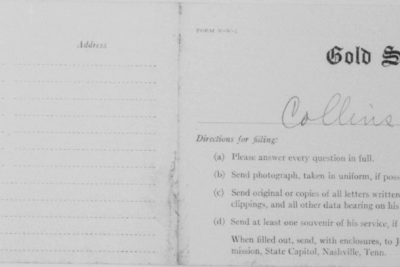 Address
Gold S
Collins
Directions for filing:
(a) Please answer every question in full.
(b) Send photograph, taken in uniform, if poss
(c) Send original or copies of all letters written
clippings, and all other data bearing on his
(d) Send at least one souvenir of his service, if
When filled out, send, with enclosures, to J
mission, State Capitol, Nashville, Tenn.